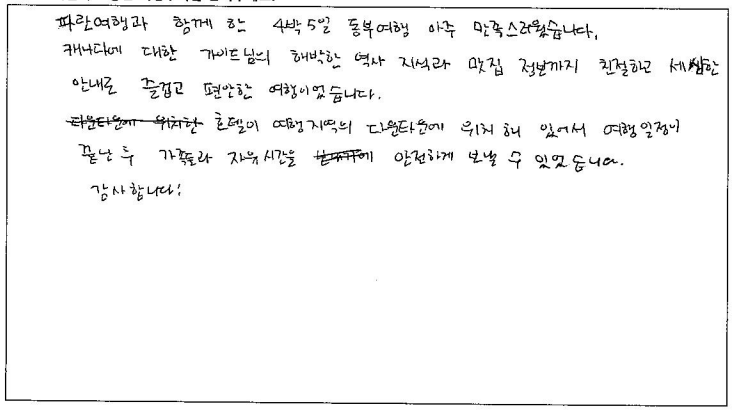 파란여행과 함께 한 4박5일 동부여행 아주 만족스러웠습니다.
캐나다에 대한 가이드님의 해박한 역사 지식과 맛집 정보까지 친절하고 세심한
안내로 즐겁고 편안한 여행이었습니다.
다운타운에 위치한 호텔이 여행지역의 다운타운에 위치해 있어서 여행일정이
끝난 후 가족들과 자유시간을 안전하게 보낼 수 있었습니다.
감사합니다!